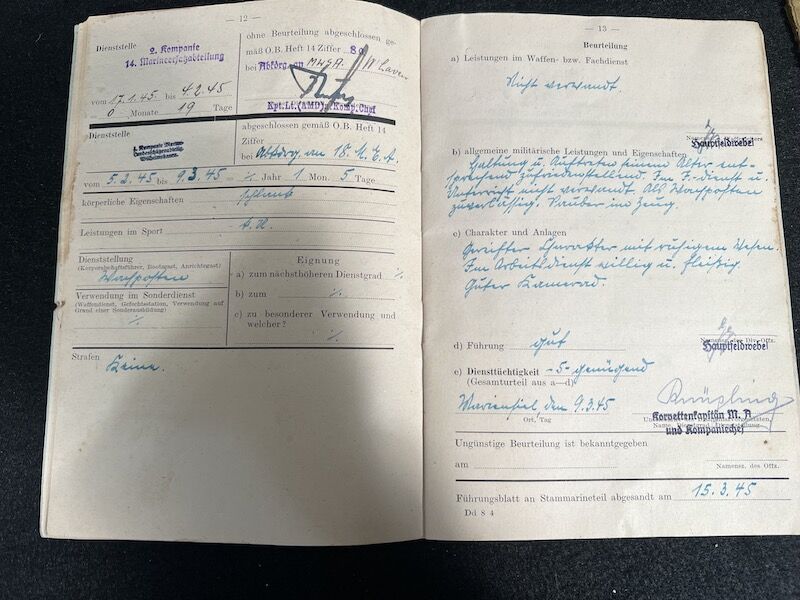 — 12 —
Dienststelle
2. Kompanie
14. Marineersatzabteilung
vom 17.1.45 bis 4.2.45
0 Monate 19 Tage
ohne Beurteilung abgeschlossen ge-
mäß O.B. Heft 14 Ziffer 8
bei Abkdrg. an
Kpt.Lt.(AMD)u.Komp.Chef
Dienststelle
abgeschlossen gemäß O.B. Heft 14
Ziffer
bei Abkdrg. an 18. M.E.A.
vom 5.2.45 bis 9.3.45 = ./. Jahr 1 Mon. 5 Tage
körperliche Eigenschaften schlank
Leistungen im Sport
Dienststellung
(Korporalschaftsführer, Bootsgast, Anrichtegast)
Wachposten
Verwendung im Sonderdienst
(Waffendienst, Gefechtsstation, Verwendung auf
Grund einer Sonderausbildung)
./.
Eignung
a) zum nächsthöheren Dienstgrad ./.
b) zum ./.
c) zu besonderer Verwendung und
welcher?
./.
Strafen
Keine.
— 13 —
Beurteilung
a) Leistungen im Waffen- bzw. Fachdienst
Nicht verwandt.
Hauptfeldwebel
b) allgemeine militärische Leistungen und Eigenschaften
Haltung u. Auftreten seinem Alter ent-
sprechend zufriedenstellend. Im F.-dienst u.
Unterricht nicht verwandt. Als Wachposten
zuverlässig. Sauber im Zeug.
c) Charakter und Anlagen
Gereifter Charakter mit ruhigem Wesen.
Im Arbeitsdienst willig u. fleißig.
Guter Kamerad.
d) Führung gut
Namensz. des Div. Offz.
Hauptfeldwebel
e) Diensttüchtigkeit -5- genügend
(Gesamturteil aus a—d)
Mariensiel, den 9.3.45
Ort, Tag
Korvettenkapitän M. A.
und Kompaniechef
Ungünstige Beurteilung ist bekanntgegeben
am
Namensz. des Offz.
Führungsblatt an Stammarineteil abgesandt am 15.3.45
Dd 8 4